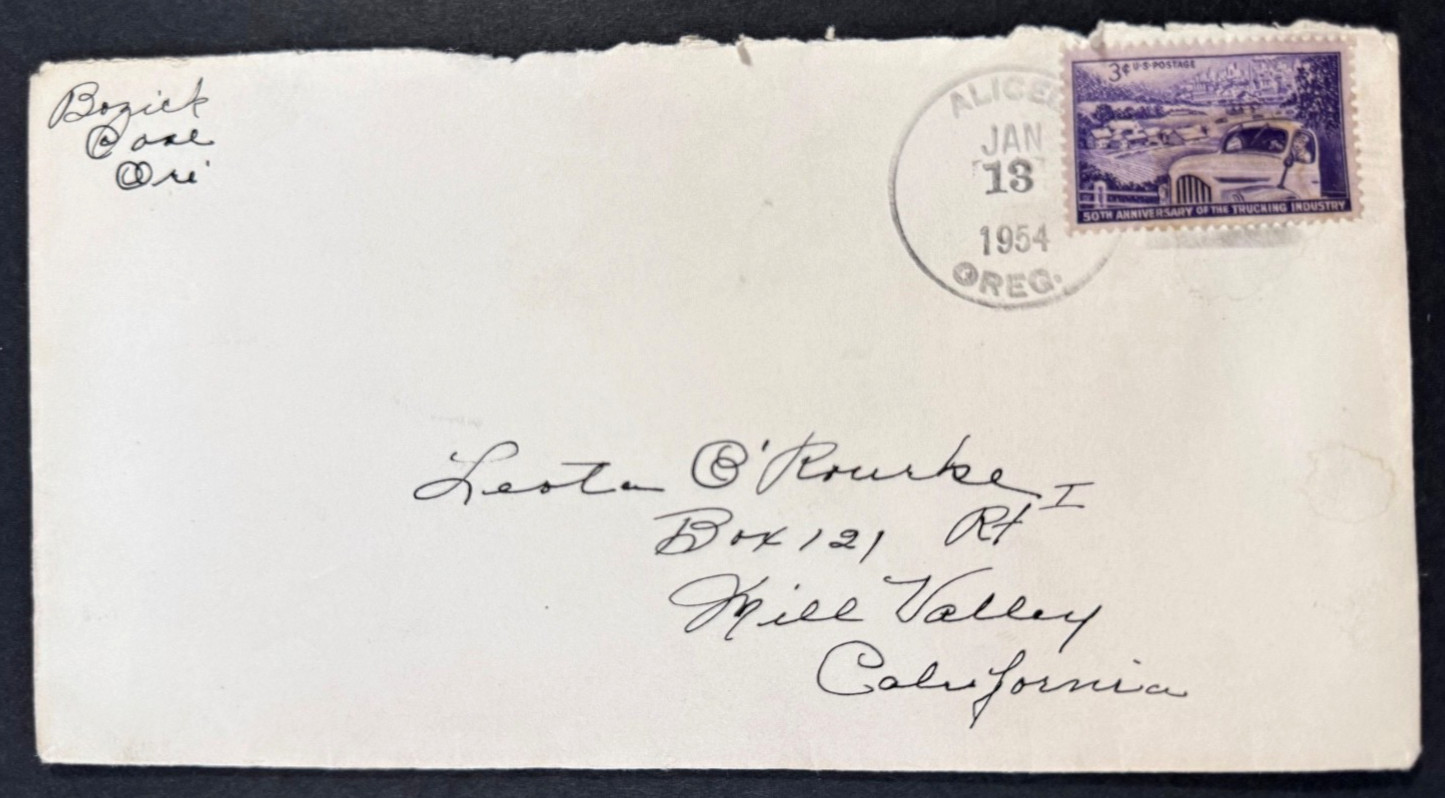 Bozick
Cove
Ore
ALICEL
JAN
13
1954
OREG.
3¢ U.S. POSTAGE
50TH ANNIVERSARY OF THE TRUCKING INDUSTRY
Leota O'Rourke
Box 121 Rt I
Mill Valley
California